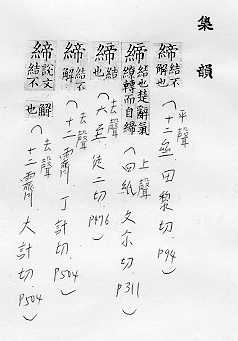 集韻
締 結不解也（平聲 十二亝 田黎切. P94）
締 結也楚辭氣繚轉而自締（上聲 四紙 丈尒切. P311）
締 結也（去聲 六至 徒二切. P476）
締 結不解（去聲 十二霽 丁計切. P504）
締 說文結不解也（去聲 十二霽 大計切. P504）